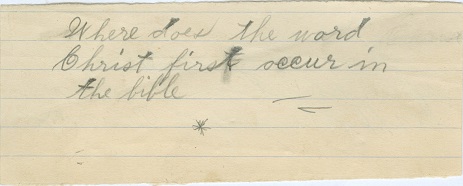 Where does the word
Christ first occur in
the bible